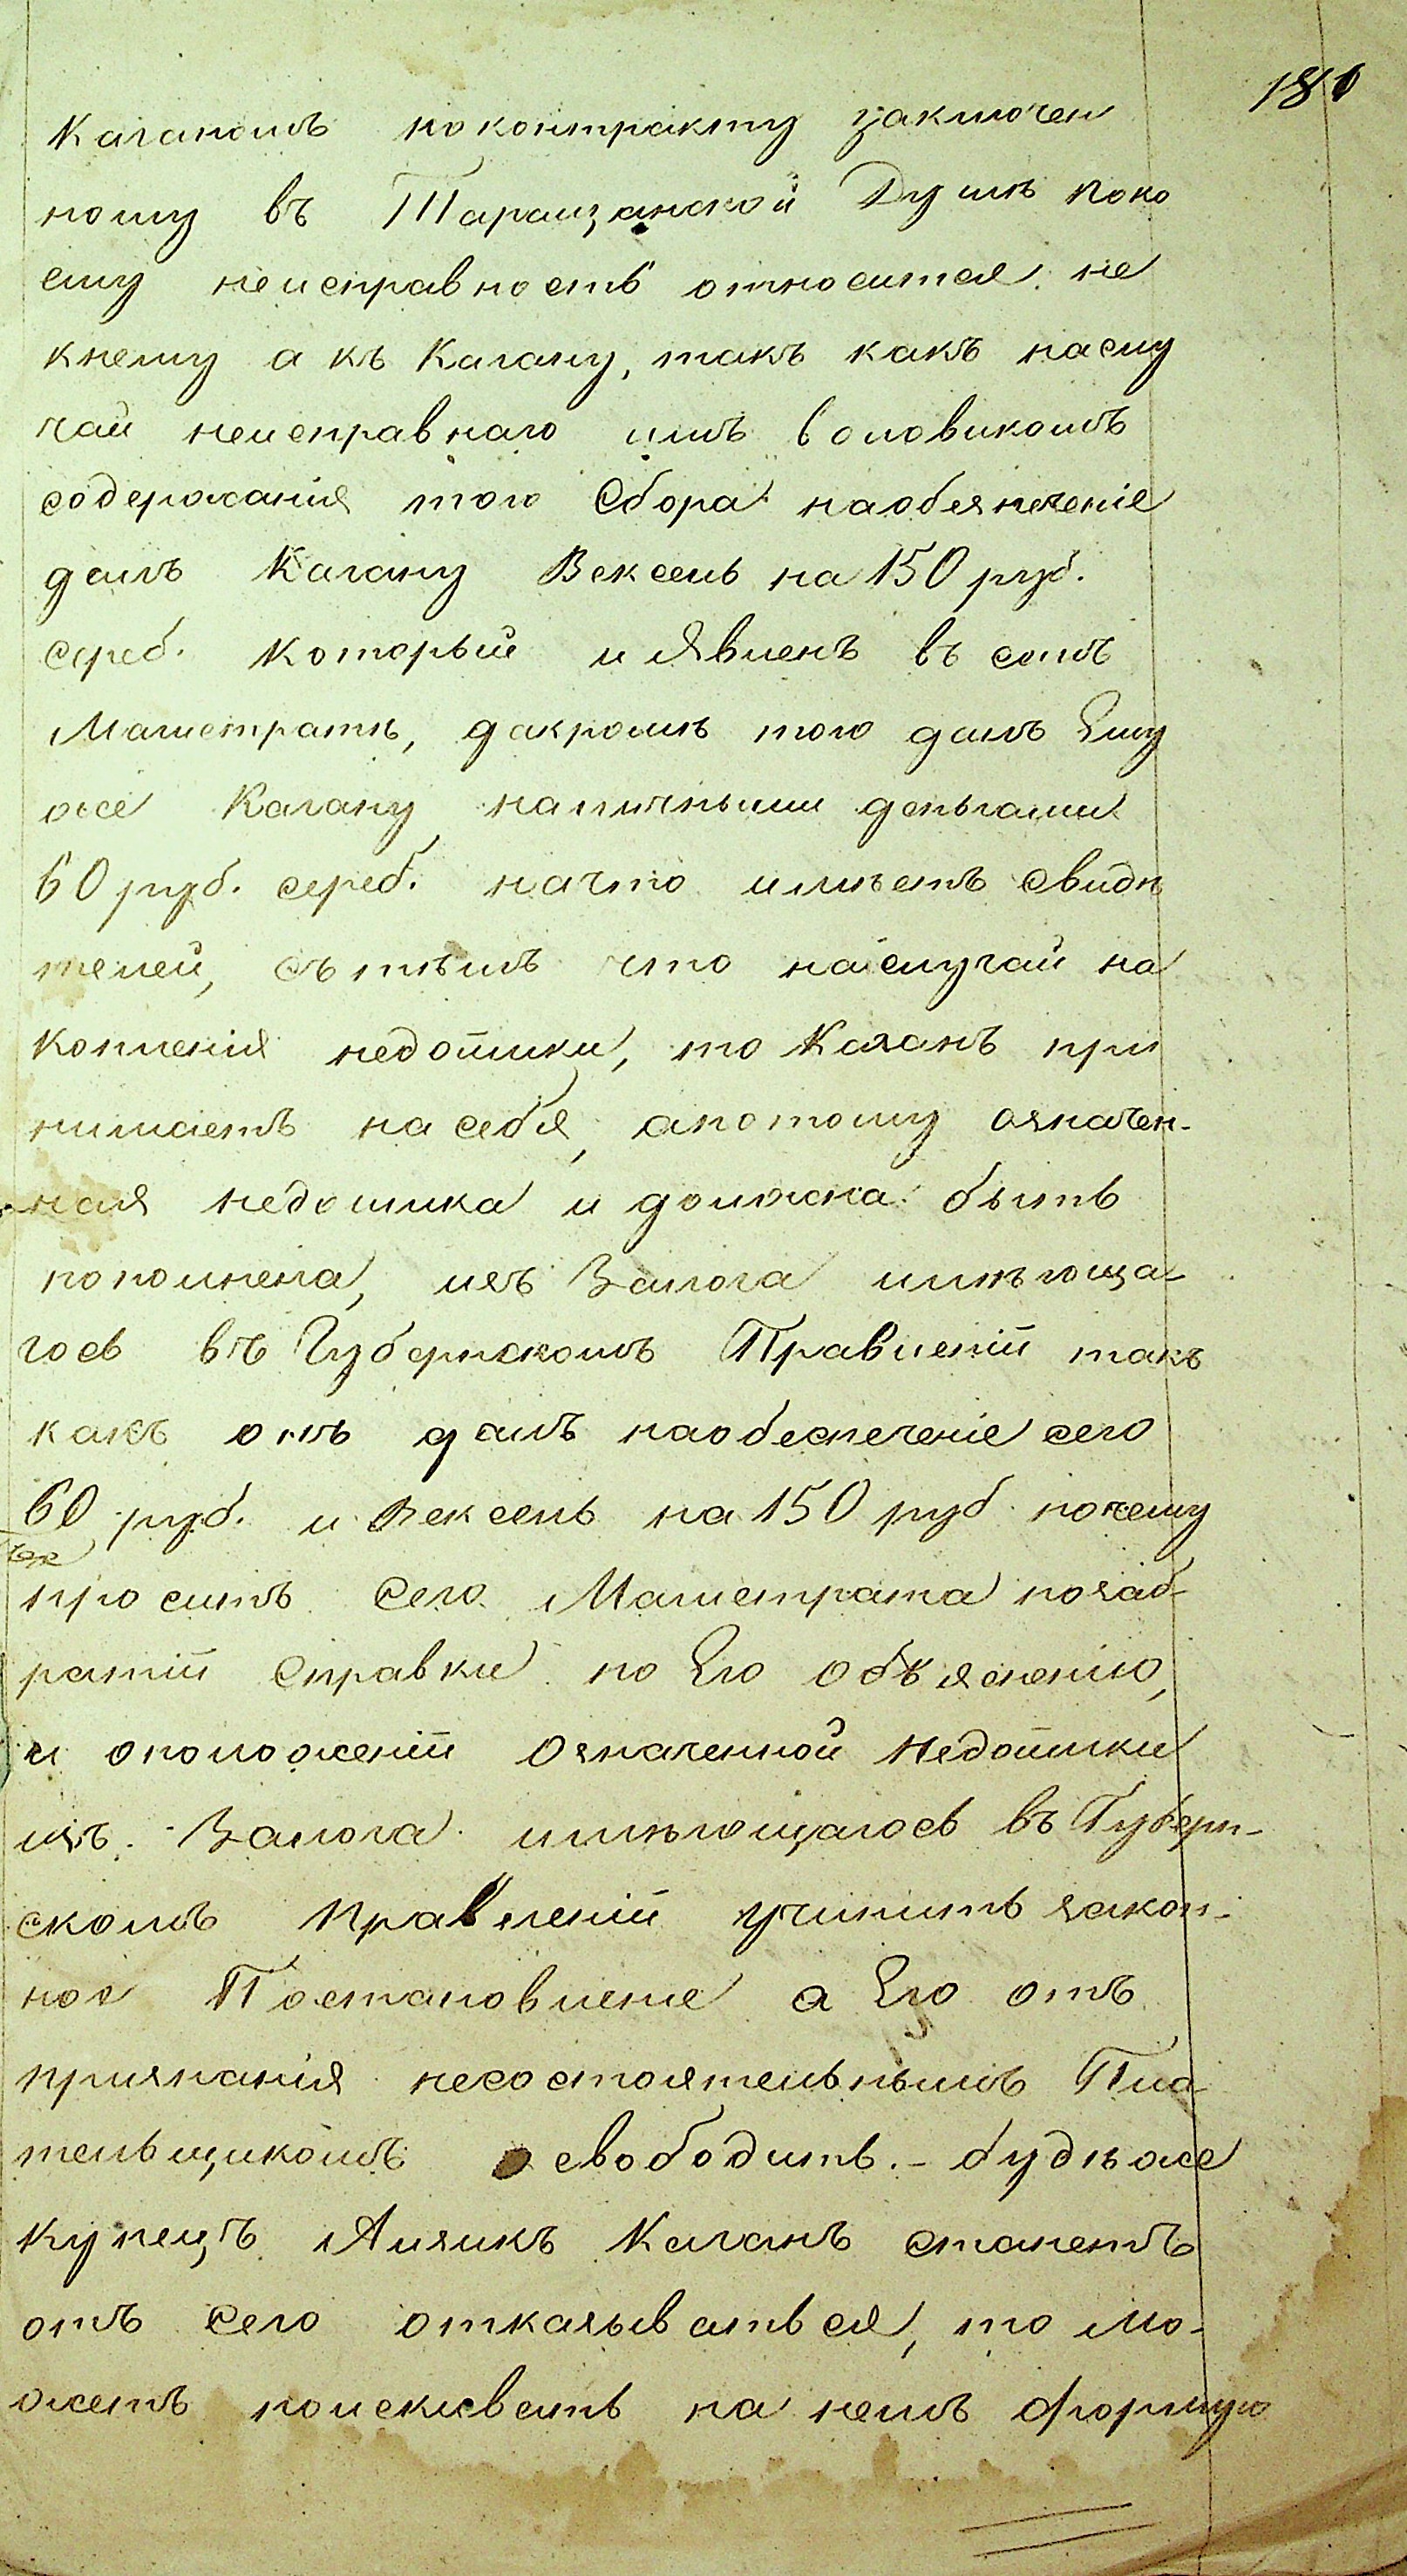 180
Каганомъ поконтракту заключен
ному въ Таращанской Думѣ поко
ему неисправность относится не
кнему а къ Кагану, такъ какъ наслу
чай неисправнаго имъ Воловикомъ
содержанія того Сбора наобезпеченіе
далъ Кагану Вексель на 150 руб.
сереб. который и Явленъ въ семъ
Магистратѣ, дакромѣ того далъ Ему
же Кагану наличными деньгами
60 руб. сереб. начто имѣетъ свидѣ
телей, съ тѣмъ что наслучай на
копленія недоимки, то Каганъ при
нимаетъ на себя, апотому означен-
ная недоимка и должна быть
пополнена, изъ Залога имѣюща-
гось въ Губернскомъ Правленіи такъ
какъ онъ далъ наобеспеченіе сего
60 руб. и Вексель на 150 руб почему
проситъ Сего Магистрата позаб-
ратіи Справки по Его объясненію,
и опополженіи Означенной Недоимки
изъ Залога имѣющагось въ Губерн-
скомъ Правленіи учинить закон-
ное Постановление а Его отъ
признанія несостоятельнымъ Пла
тельщикомъ освободить. - будѣже
Купецъ Аизикъ Каганъ станетъ
отъ сего отказываться, то мо-
жетъ поискивать на немъ формую